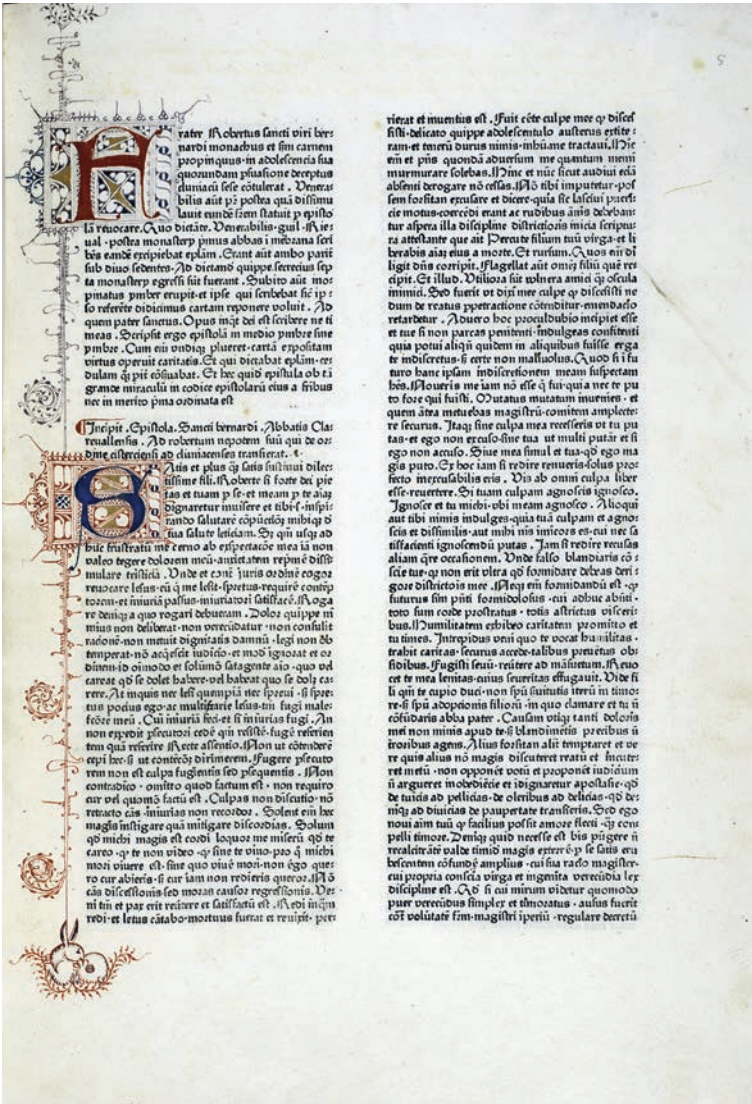 5
Frater Robertus sancti viri ber⸗
nardi monachus et sm̄ carnem
propinquus·in adolescencia sua
quorundam p̱suasione deceptus
cluniacū sese cōtulerat . Veneras
bilis aūt pr̄ postea quā dissimu
lauit eundē frēm statuit p̱ episto
lā reuocare.Quo dictāte.Venerabilis·guil·Rie⸗
ual·postea monastery pmus abbas ī mēbrana scri
bēs eandē excipiebat eplām.Erant aūt ambo parit̄
sub diuo sedentes·Ad dictandū quippe secrecius sep
ta monastery egressi sūt fuerant. Subito aūt ino⸗
pinatus ymber erupit·et ipse qui scribebat sic̄ ip⸗
so referēte didicimus cartam reponere voluit . Ad
quem pater sanctus.Opus inq̄t dei est scribere ne ti
meas. Scripsit ergo epistolā in medio ymbre sine
ymbre . Cum eī vndiqꝫ plueret·cartā expositam
virtus operuit caritatis. Et qui dictabat eplām·ce⸗
dulam q̄ꝫ pit cōsūabat. Et hec quid epistula ob tā
grande miraculū in codice epistolarū eius a fribus
nec in merito pma ordinata est
Incipit . Epistola. Sancti bernardi . Abbatis Cla⸗
reuallensis . Ad robertum nepotem suū qui de or⸗
dine cisterciensi ad cluniacenses transierat.
Satis et plus q̄ꝫ satis sustinui dilec⸗
tissime fili. Roberte si forte dei pie⸗
tas et tuam p̱ se·et meam p̱ te aīaꝫ
dignaretur inuisere et tibi·s·inspi⸗
rando salutarē cōpūctiōeꝫ mihiqꝫ d̄
tua salute leticiam. Sꝫ q̄m usqꝫ ad
huc frustratū me cerno ab exspectacōe mea iā non
valeo tegere dolorem meū·anxietatem rep̄mē dissi⸗
mulare tristiciā . Vnde et cont̄ iuris ordinē cogor
reuocare lesus·eū q̄ me lesit·spretus·requirē contēp
torem·et iniuriā passus·iniuriatori satisfacē.Roga
re deniqꝫ a quo rogari debueram . Dolor quippe ni
mius non deliberat·non verecūdatur·non consulit
racionē·non metuit dignitatis damnū·legi non ob
temperat·nō acqescit iudicio·et mod̄ ignorat·et or
dinem·id oimodo et solūmō satagente aio·quo vel
careat qd se dolet habere·vel habeat quo se dolꝫ ca⸗
rere.At inquis nec lesi quempiā nec spreui·sꝫ spre⸗
tus pocius ego·ac multifarie lesus·tm̄ fugi male⸗
fcōrē meū . Cui iniuriā feci·et si iniurias fugi . An
non expedit p̱secutori cedē q̄m resistē·fugē ferien
tem quā referire Recte assentio.Non ut cōtēderē
cepi hec·sꝫ ut contēcōꝫ dirimerem. Fugere p̱secuto
rem non est culpa fugientis sed p̱sequentis . Non
contradico·omitto quod factum est·non requiro
cur vel quomō factū est . Culpas non discutio·nō
retracto cās·iniurias non recordor. Solent eī hec
magis instigare quā mitigare discordias. Solum
qd michi magis est cordi loquor·me miserū qd te
careo·ꝙ te non video·ꝙ sine te viuo·pro q̄ michi
mori viuere est·sine quo viuē mori·non ēgo que⸗
ro cur abieris·sꝫ cur iam non redieris queror.Nō
cās discessionis·sed moras causor regressionis. Ve⸗
ni tm̄ et pax erit reūtere et satisfactū est . Redi inq̄m
redi·et letus cātabo·mortuus fuerat et reuixit·pe⸗
rierat et inuentus est . Fuit cēte culpe mee ꝙ disces
sisti·delicato quippe adolescentulo austerus extite⸗
ram·et tenerū durus nimis·inhūane tractaui.Hic
em̄ et p̄ns quondā aduersum me quantum memi
murmurare solebas.Hinc et nūc sicut audiui ecīā
absenti derogare nō cessas.Nō tibi imputetur·pos
sem forsitan excusare et dicere·quia sic lasciui pueri⸗
cie motus·coercēdi erant·ac rudibus ānis debeban⸗
tur aspera illa discipline districtioris inicia scriptu⸗
ra attestante que ait Percute filium tuū virga·et li
berabis aīaꝫ eius a morte.Et rursum.Quos eīī di
ligit dn̄s corripit. Flagellat aūt omneꝫ filiū quē re⸗
cipit. Et illud. Vtiliora sūt vulnera amici q̄ꝫ oscula
inimici. Sed fuerit vt dixi mee culpe ꝙ discessisti ne
dum de reatus p̱petractione cōtēditur·emendacio
retardetur . Aduero hoc proculdubio incipiet esse
et tue si non parcas penitenti·indulgeas confitenti
quia potui aliqn̄ quidem in aliquibus fuisse erga
te indiscretus·sꝫ certe non maliuolus. Quod si ī fu
turo hanc ipsam indiscretionem meam suspectam
hēs.Noueris me iam nō esse q̄ fui·quia nec te pu
to fore qui fuisti. Mutatus mutatum inuenies·et
quem ātea metuebas magistrū·comitem amplecte⸗
re securus. Itaqꝫ sine culpa mea recesseris vt tu pu
tas·et ego non excuso·sine tua ut multi putāt et si
ego non accuso. Siue mea simul et tua·qd ego ma
gis puto.Ex hoc iam si redire renueris·solus pro⸗
fecto inexcusabilis eris . Vis ab omni culpa liber
esse·reuertere. Si tuam culpam agnoscis ignosco.
Ignosce et tu michi·vbi meam agnosco . Alioqui
aut tibi nimis indulges·quia tuā culpam et agno⸗
scis et dissimilis·aut mihi nīs īmicors es·cui nec sa
tisfacienti ignoscendū putas . Iam si redire recusas
aliam q̄re occasionem. Vnde falso blandiaris cō⸗
scie tue·ꝙ non erit vltra qd formidare debeas deri⸗
gore districtois mee .Neqꝫ eī formidandū est·ꝙ
futurus sim pn̄ti formidolosus·cui adhuc absīti·
toto sum corde prostratus·totis astrictus visceri⸗
bus.Humilitatem exhibeo caritatem promitto et
tu times. Intrepidus veni quo te vocat humilitas·
trahit caritas·securus accede·talibus preuētus ob⸗
sidibus. Fugisti seuū·reūtere ad māsuetum. Reuo
cet te mea lenitas·cuius seueritas effugauit. Vide fi
li q̄m te cupio duci·non sp̄u seruitutis iterū in timo⸗
re·sꝫ sp̄u adopcionis filiorū·in quo clamare et tu nō
cōfūdaris abba pater . Causam vtiqꝫ tanti doloris
mei non minis apud te·sꝫ blandimētis precibus nō
t̄roribus agens. Alius forsitan alit̄ temptaret·et ve
re quis alius nō magis discuteret reatū et īncute⸗
ret metū·non opponēt votū et proponēt iudiciū
nō argueret inobediēcie et īdignaretur apostasie·qd
de tūicis ad pellicias·de oleribus ad delicias·qd de⸗
niqꝫ ad diuicias de paupertate transieris. Sed ego
noui aīm tuū ꝙ facilius possit amore flecti·q̄ꝫ com
pelli timore. Deniqꝫ quid necesse est bis pūgere nō
recalcitrātē valde timid̄ magis exterrē·p̱ se satis eru
bescentem cōfundē amplius·cui sua racio magister·
cui propria conscia virga et ingenita verecūdia lex
discipline est . Qd si cui mirum videtur quomodo
puer verecūdus simplex et timoratus·ausus fuerit
cōt̄ volūtatē frm̄·magistri īperiū·regulare decretū